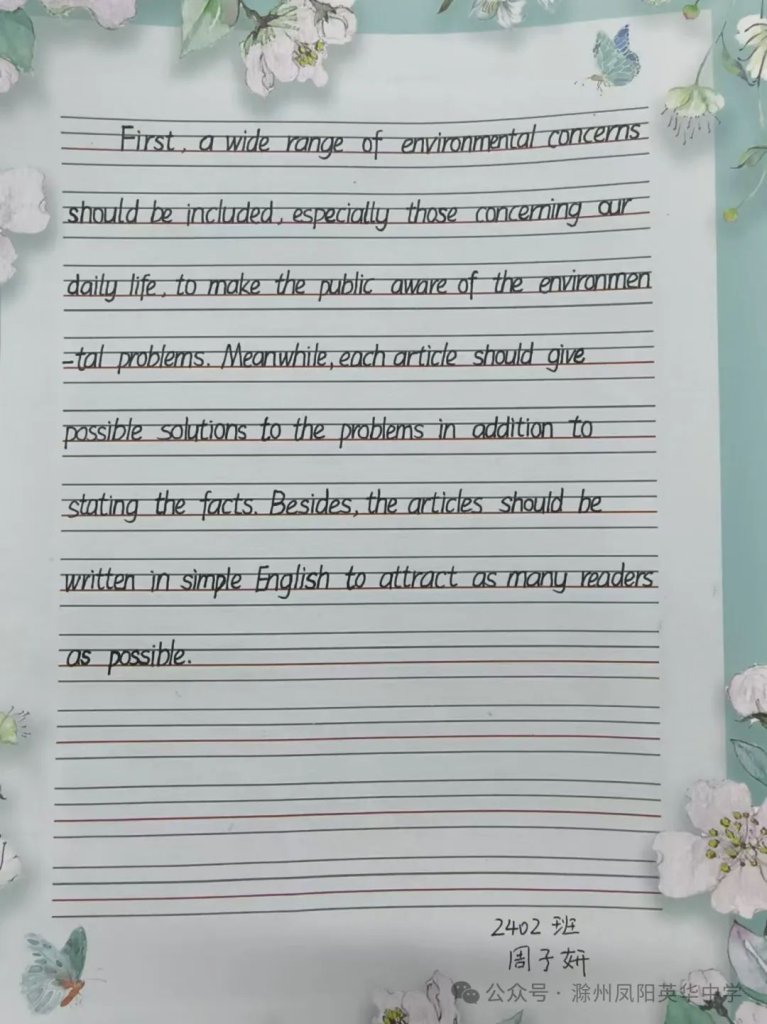 First, a wide range of environmental concerns
should be included, especially those concerning our
daily life, to make the public aware of the environmen
-tal problems. Meanwhile, each article should give
possible solutions to the problems in addition to
stating the facts. Besides, the articles should be
written in simple English to attract as many readers
as possible.
2402 班
周子妍
公众号·滁州凤阳英华中学